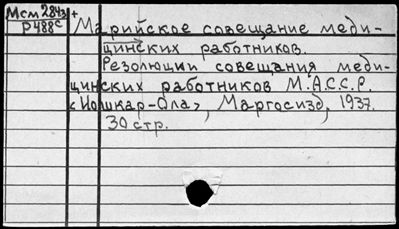 Мсм 284з+
Р488с
Марийское совещание меди-
цинских работников.
Резолюции совещания меди-
цинских работников М.А.С.С.Р.
<Йошкар-Ола>, Маргосизд, 1937.
30 стр.